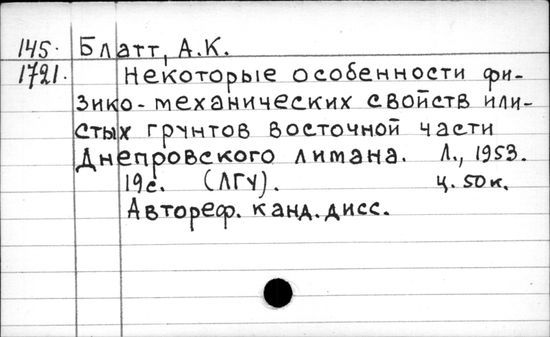 145. Блатт, А.К.
1721. Некоторые особенности фи-
зико-механических свойств или-
стых грунтов восточной части
Днепровского лимана. Л., 1953.
19с. (ЛГУ). ц. 50к.
Автореф. канд. дисс.